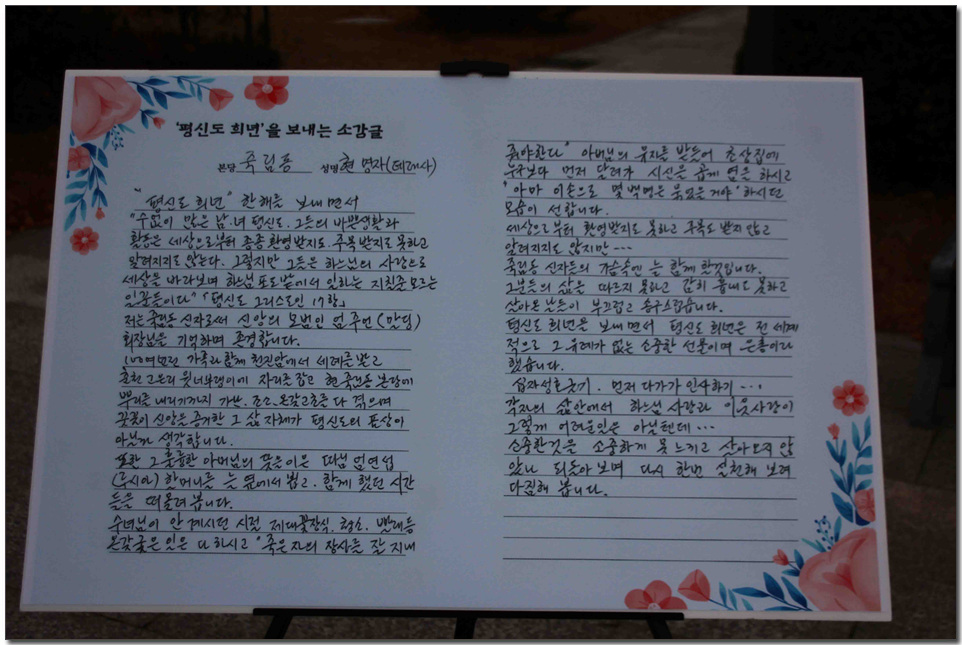 '평신도 희년'을 보내는 소감글
본당 죽림동 성명 현명자(데레사)
"평신도 희년" 한해를 보내면서
"수없이 많은 남·녀 평신도. 그들의 바쁜생활과
활동은 세상으로부터 종종 환영받지도. 주목 받지도 못하고
알려지지도 않는다. 그렇지만 그들은 하느님의 사랑으로
세상을 바라보며 하느님 포도밭에서 일하는 지칠줄 모르는
일꾼들이다" 「평신도 그리스도인 17항」
저는 죽림동 신자로써 신앙의 모범인 엄주언(말딩)
회장님을 기억하며 존경합니다.
100여년전 가족과 함께 천진암에서 세례를 받고
춘천 고은리 윗너부랭이에 자리를 잡고 현 죽림동 본당에
뿌리를 내리기까지 가난. 조소. 온갖고초를 다 겪으며
꽃꽃이 신앙을 증거한 그 삶 자체가 평신도의 표상이
아닐까 생각합니다.
또한 그 훌륭한 아버님의 뜻을 이은 따님 엄연섭
(루시아) 할머니를 늘 옆에서 뵙고. 함께 했던 시간
들을 떠올려 봅니다.
수녀님이 안 계시던 시절 제대꽃장식. 청소. 빨래등
온갖궂은 일은 다 하시고 "죽은자의 장사를 잘 지내
줘야한다" 아버님의 유지를 받들어 초상집에
누구보다 먼저 달려가 시신을 곱게 염을 하시고
"아마 이손으로 몇 백명은 묶었을거야" 하시던
모습이 선합니다.
세상으로부터 환영받지도 못하고 주목도 받지 않고
알려지지도 않지만...
죽림동 신자들의 가슴속엔 늘 함께 할것입니다.
그분들의 삶을 따르지 못하고 감히 흉내도 못하고
살아온 날들이 부끄럽고 송구스럽습니다.
평신도 희년을 보내면서 평신도 희년은 전 세계
적으로 그 유례가 없는 소중한 선물이며 은총이라
했습니다.
십자성호긋기. 먼저 다가가 인사하기...
각자의 삶안에서 하느님 사랑과 이웃사랑이
그렇게 어려운일은 아닐텐데...
소중한것을 소중하게 못 느끼고 살아오지 않
았나 되돌아보며 다시 한번 실천해 보려
다짐해 봅니다.